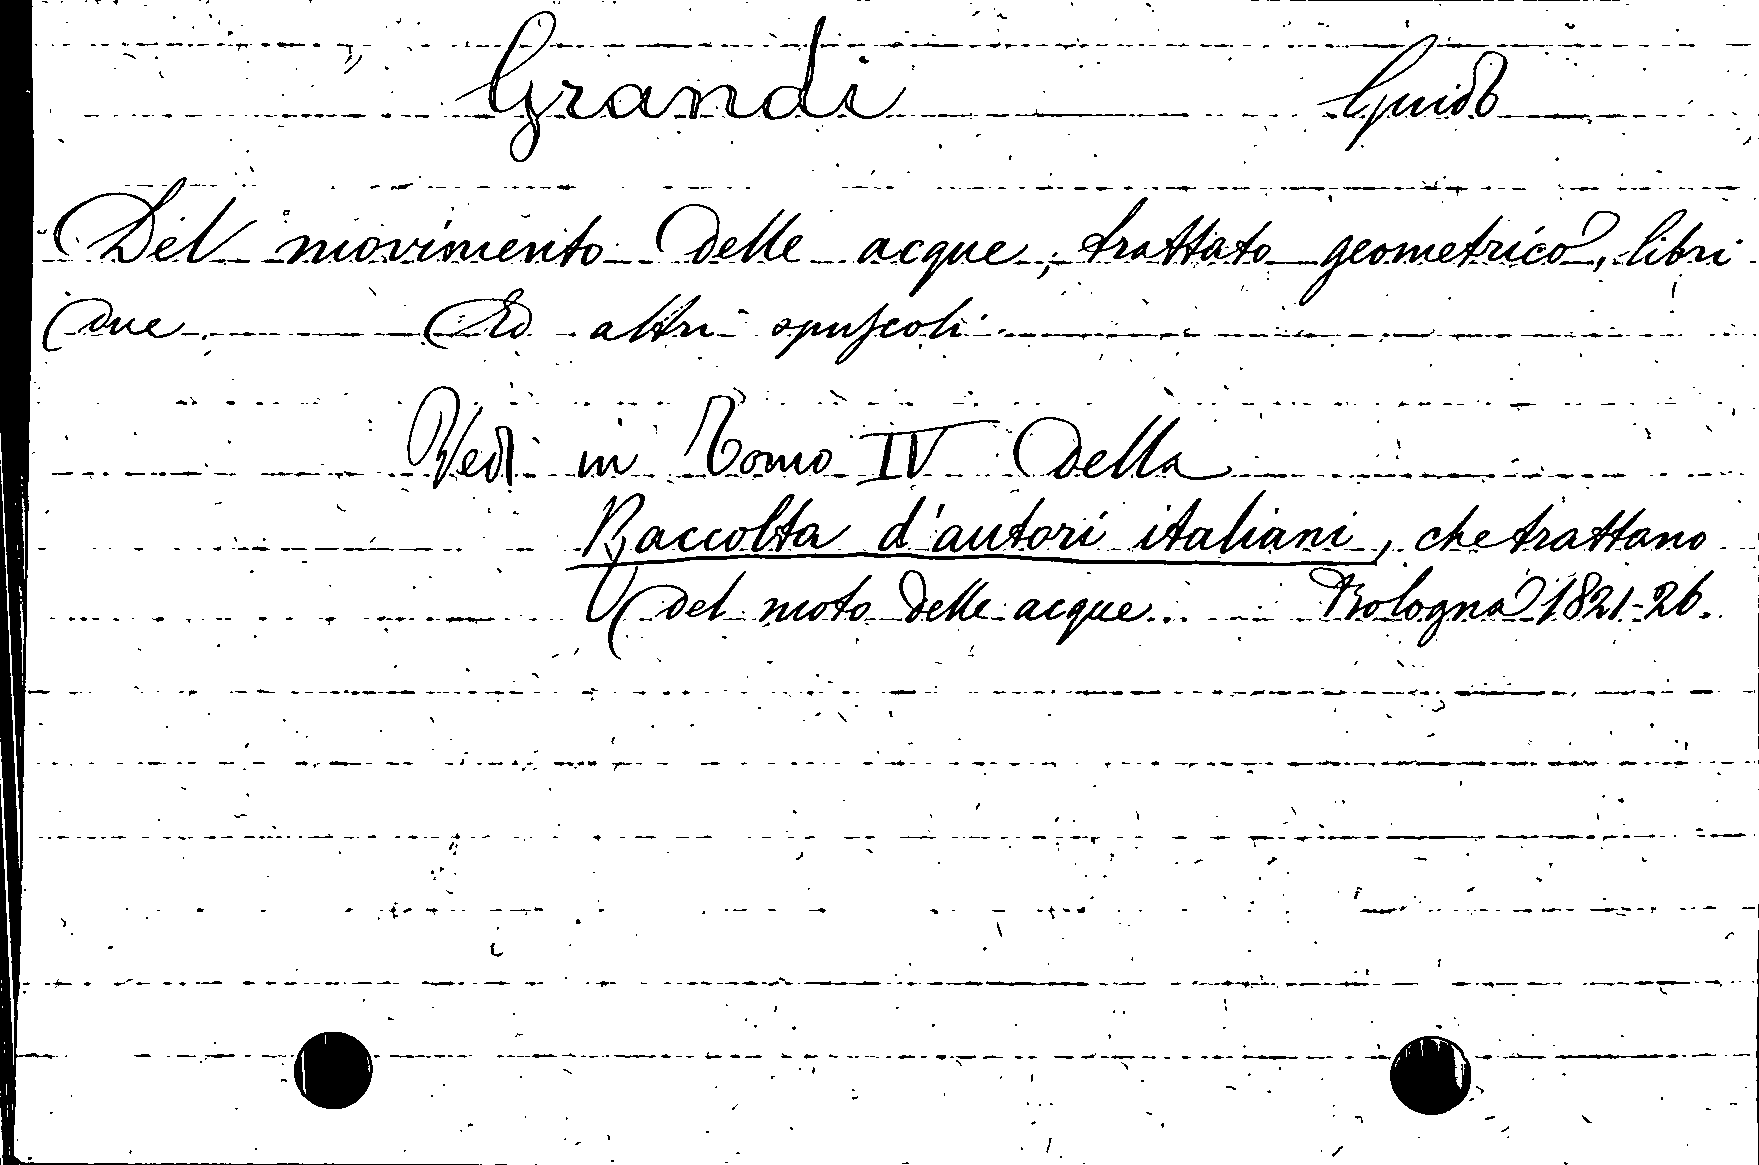 Grandi Guido
Del movimento delle acque, trattato geometrico, libri
due. Ed altri opuscoli.
Vedi in Tomo IV della
Raccolta d'autori italiani, che trattano
del moto delle acque... Bologna 1821-26.